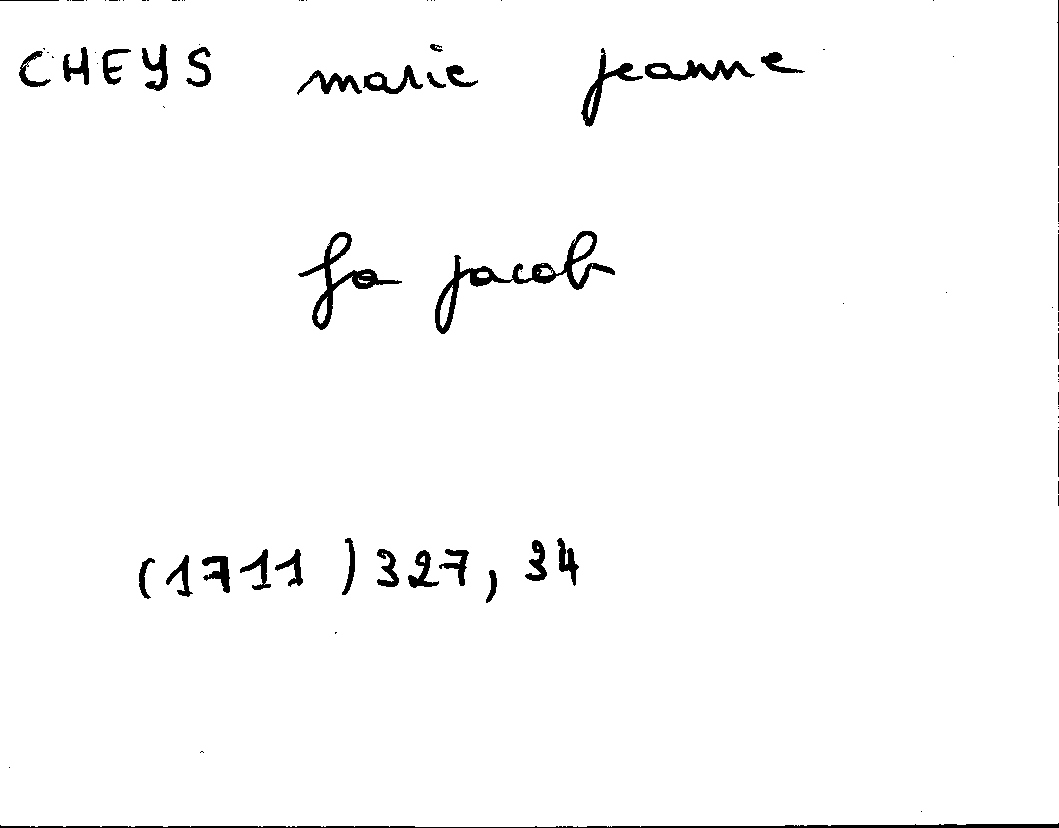 CHEYS marie jeanne
fa jacob
(1711) 327, 34